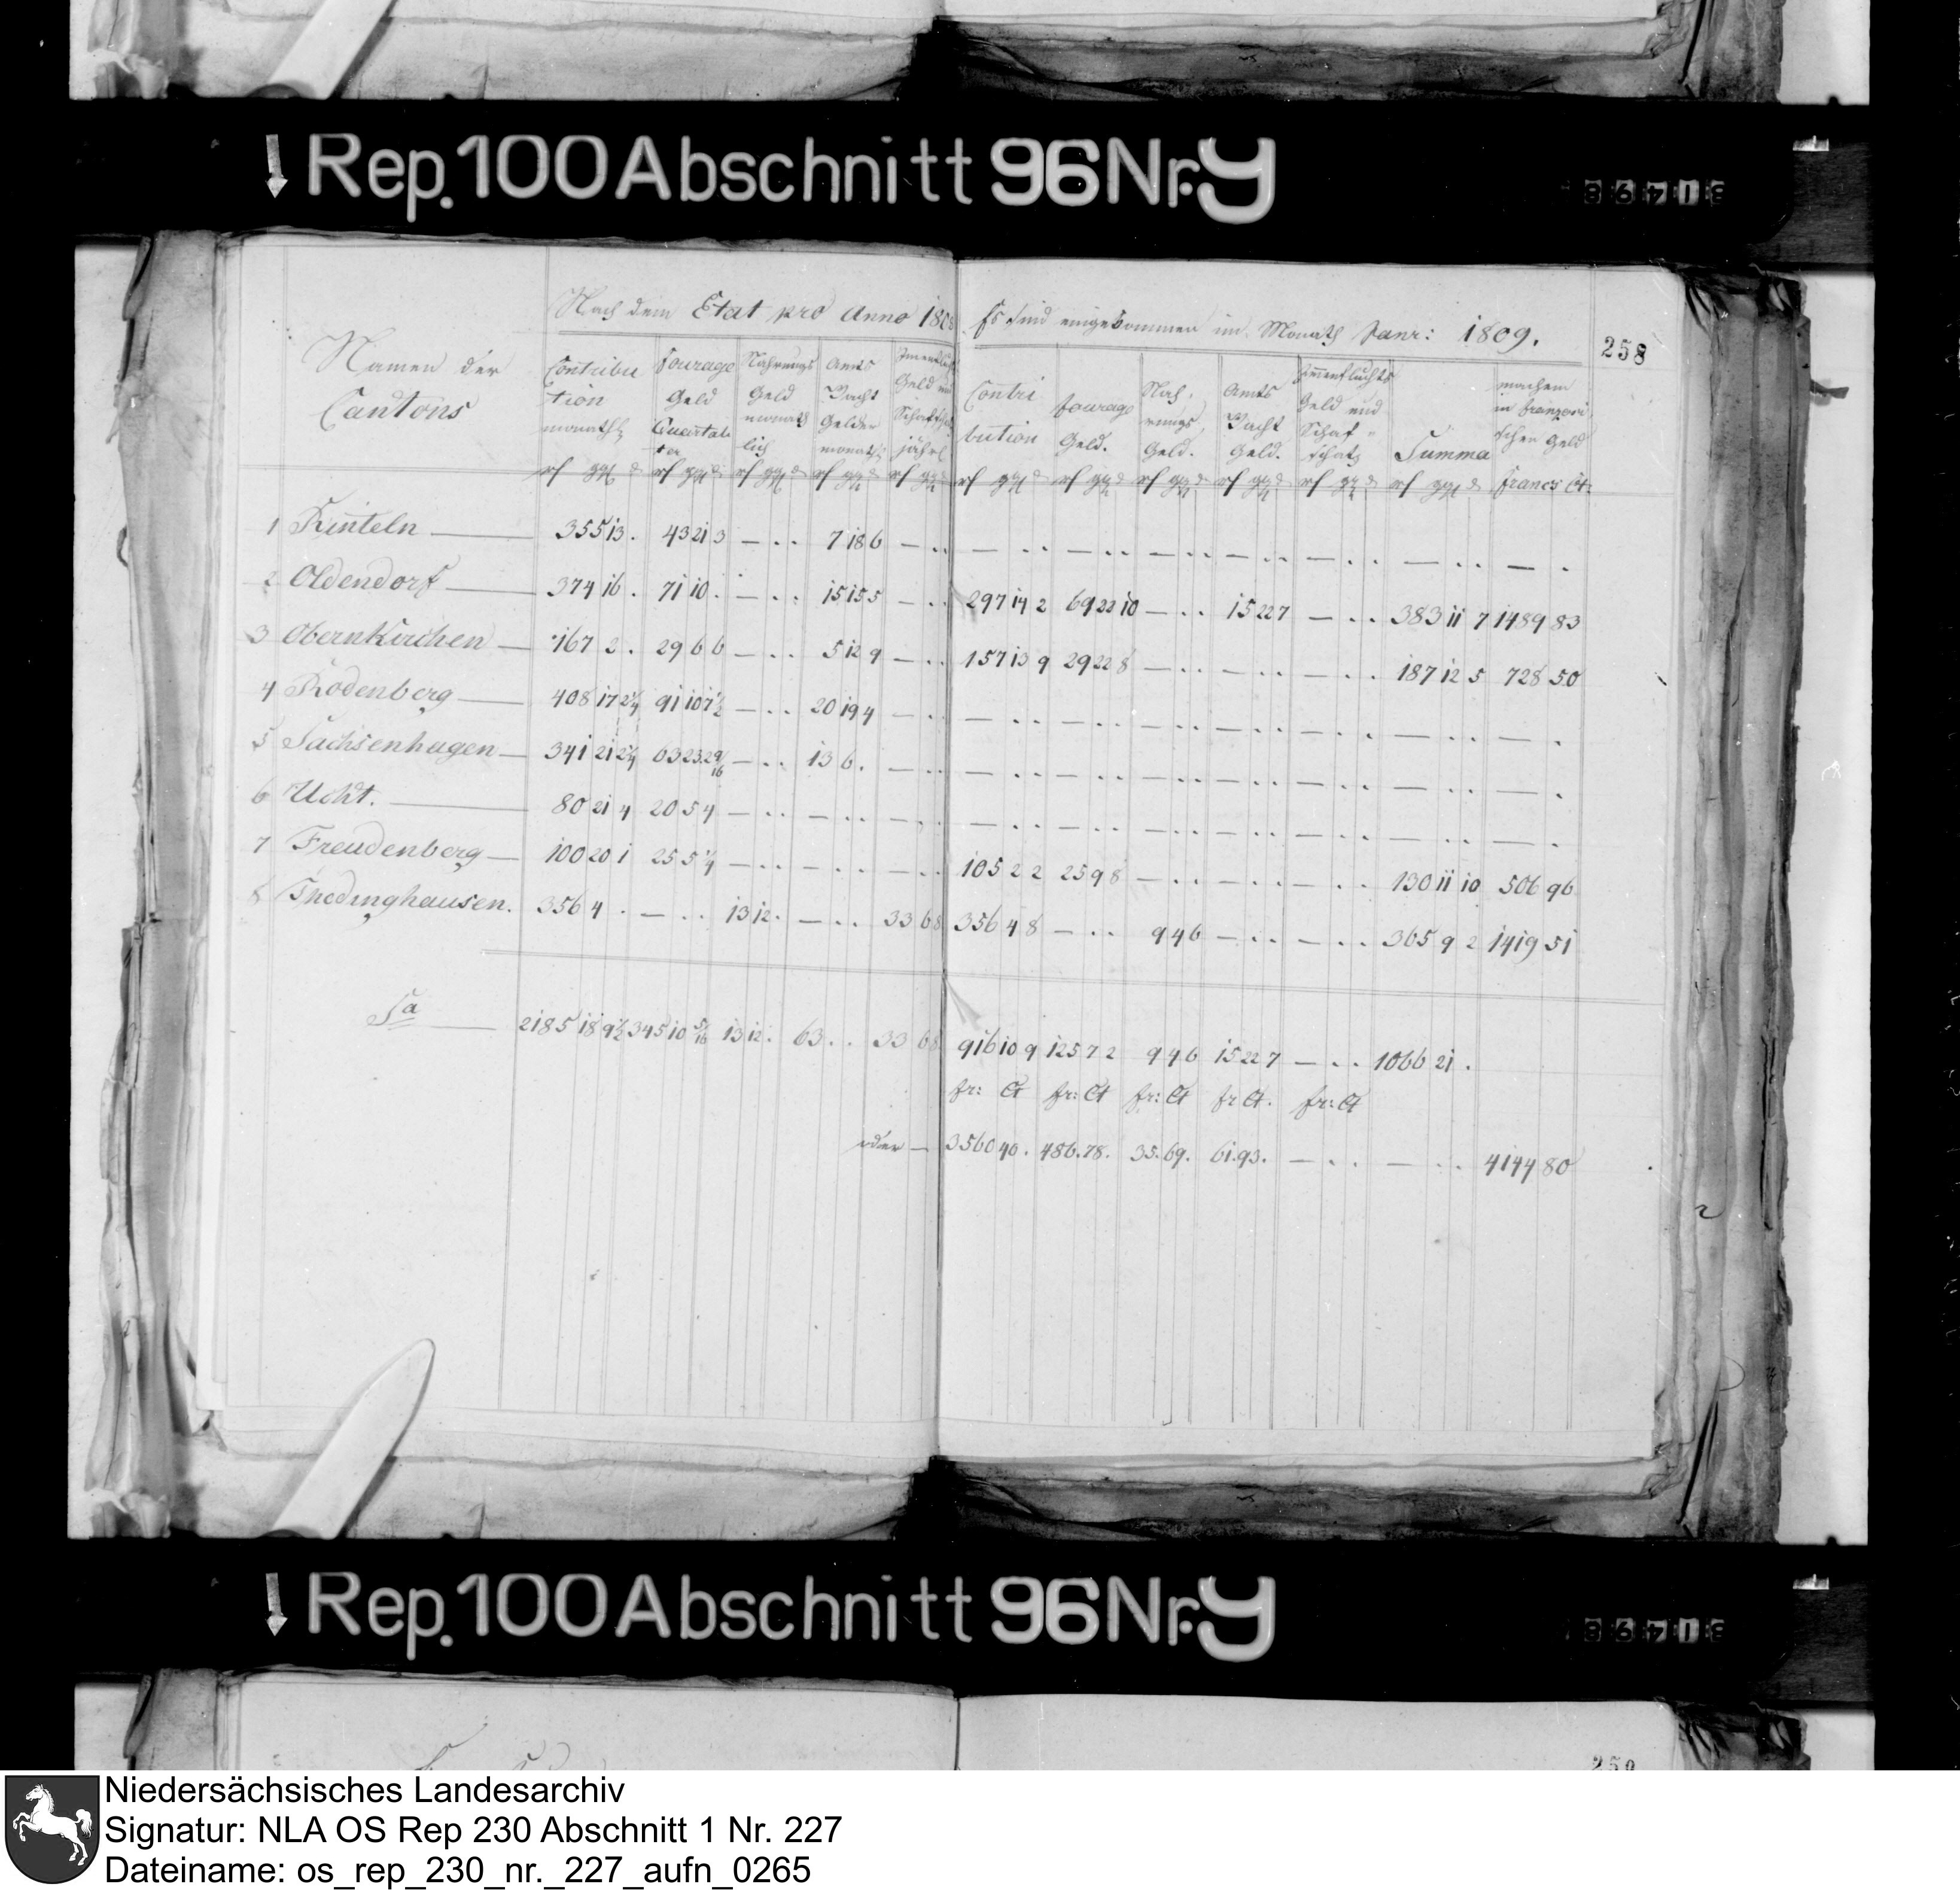 Rep. 100 Abschnitt 96 Nr. 9
Namen der Cantons
Nach dem Etat pro Anno 1808
Es sind eingekommen im Monath Janr: 1809.
258
Contribution monathl. | Fourage Geld Quartaliter | Nahrungs Geld monathlich | Amts Pacht Gelder monathl. | Immenflucht Geld und Schafschatz jährl. | Contribution | Fourage Geld. | Nahrungs Geld. | Amts Pacht Geld. | Immenfluchts Geld und Schafschatz | Summa | machen in Französischen Geld
rf ggl d | rf ggl d | rf ggl d | rf ggl d | rf ggl d | rf ggl d | rf ggl d | rf ggl d | rf ggl d | rf ggl d | rf ggl d | Francs Ct:
1 Rinteln — 355 13 . | 43 21 3 | — . . | 7 18 6 | — . . | — . . | — . . | — . . | — . . | — . . | — . . | — .
2 Oldendorf — 374 16 . | 71 10 . | — . . | 15 15 5 | — . . | 297 14 2 | 69 22 10 | — . . | 15 22 7 | — . . | 383 11 7 | 1489 83
3 Obernkirchen — 167 2 . | 29 6 6 | — . . | 5 12 9 | — . . | 157 13 9 | 29 22 8 | — . . | — . . | — . . | 187 12 5 | 728 50
4 Rodenberg — 408 17 2 1/4 | 91 10 7 1/2 | — . . | 20 19 4 | — . . | — . . | — . . | — . . | — . . | — . . | — . . | — .
5 Sachsenhagen — 341 21 2 1/4 | 63 23 2 9/16 | — . . | 13 6 . | — . . | — . . | — . . | — . . | — . . | — . . | — . . | — .
6 Ucht. — 80 21 4 | 20 5 4 | — . . | — . . | — . . | — . . | — . . | — . . | — . . | — . . | — . . | — .
7 Freudenberg — 100 20 1 | 25 5 1/4 | — . . | — . . | — . . | 105 2 2 | 25 9 8 | — . . | — . . | — . . | 130 11 10 | 506 96
8 Thedinghausen. 356 4 . | — . . | 13 12 . | — . . | 33 6 8 | 356 4 8 | — . . | 9 4 6 | — . . | — . . | 365 9 2 | 1419 51
Sa — 2185 18 9 1/2 | 345 10 5/16 | 13 12 . | 63 . . | 33 6 8 | 916 10 9 | 125 7 2 | 9 4 6 | 15 22 7 | — . . | 1066 21 .
fr: Ct | fr: Ct | fr: Ct | fr Ct. | fr: Ct
oder — 3560 40. | 486.78. | 35.69. | 61.93. | — . . | — . . | 4144 80
Rep. 100 Abschnitt 96 Nr. 9
Niedersächsisches Landesarchiv
Signatur: NLA OS Rep 230 Abschnitt 1 Nr. 227
Dateiname: os_rep_230_nr._227_aufn_0265